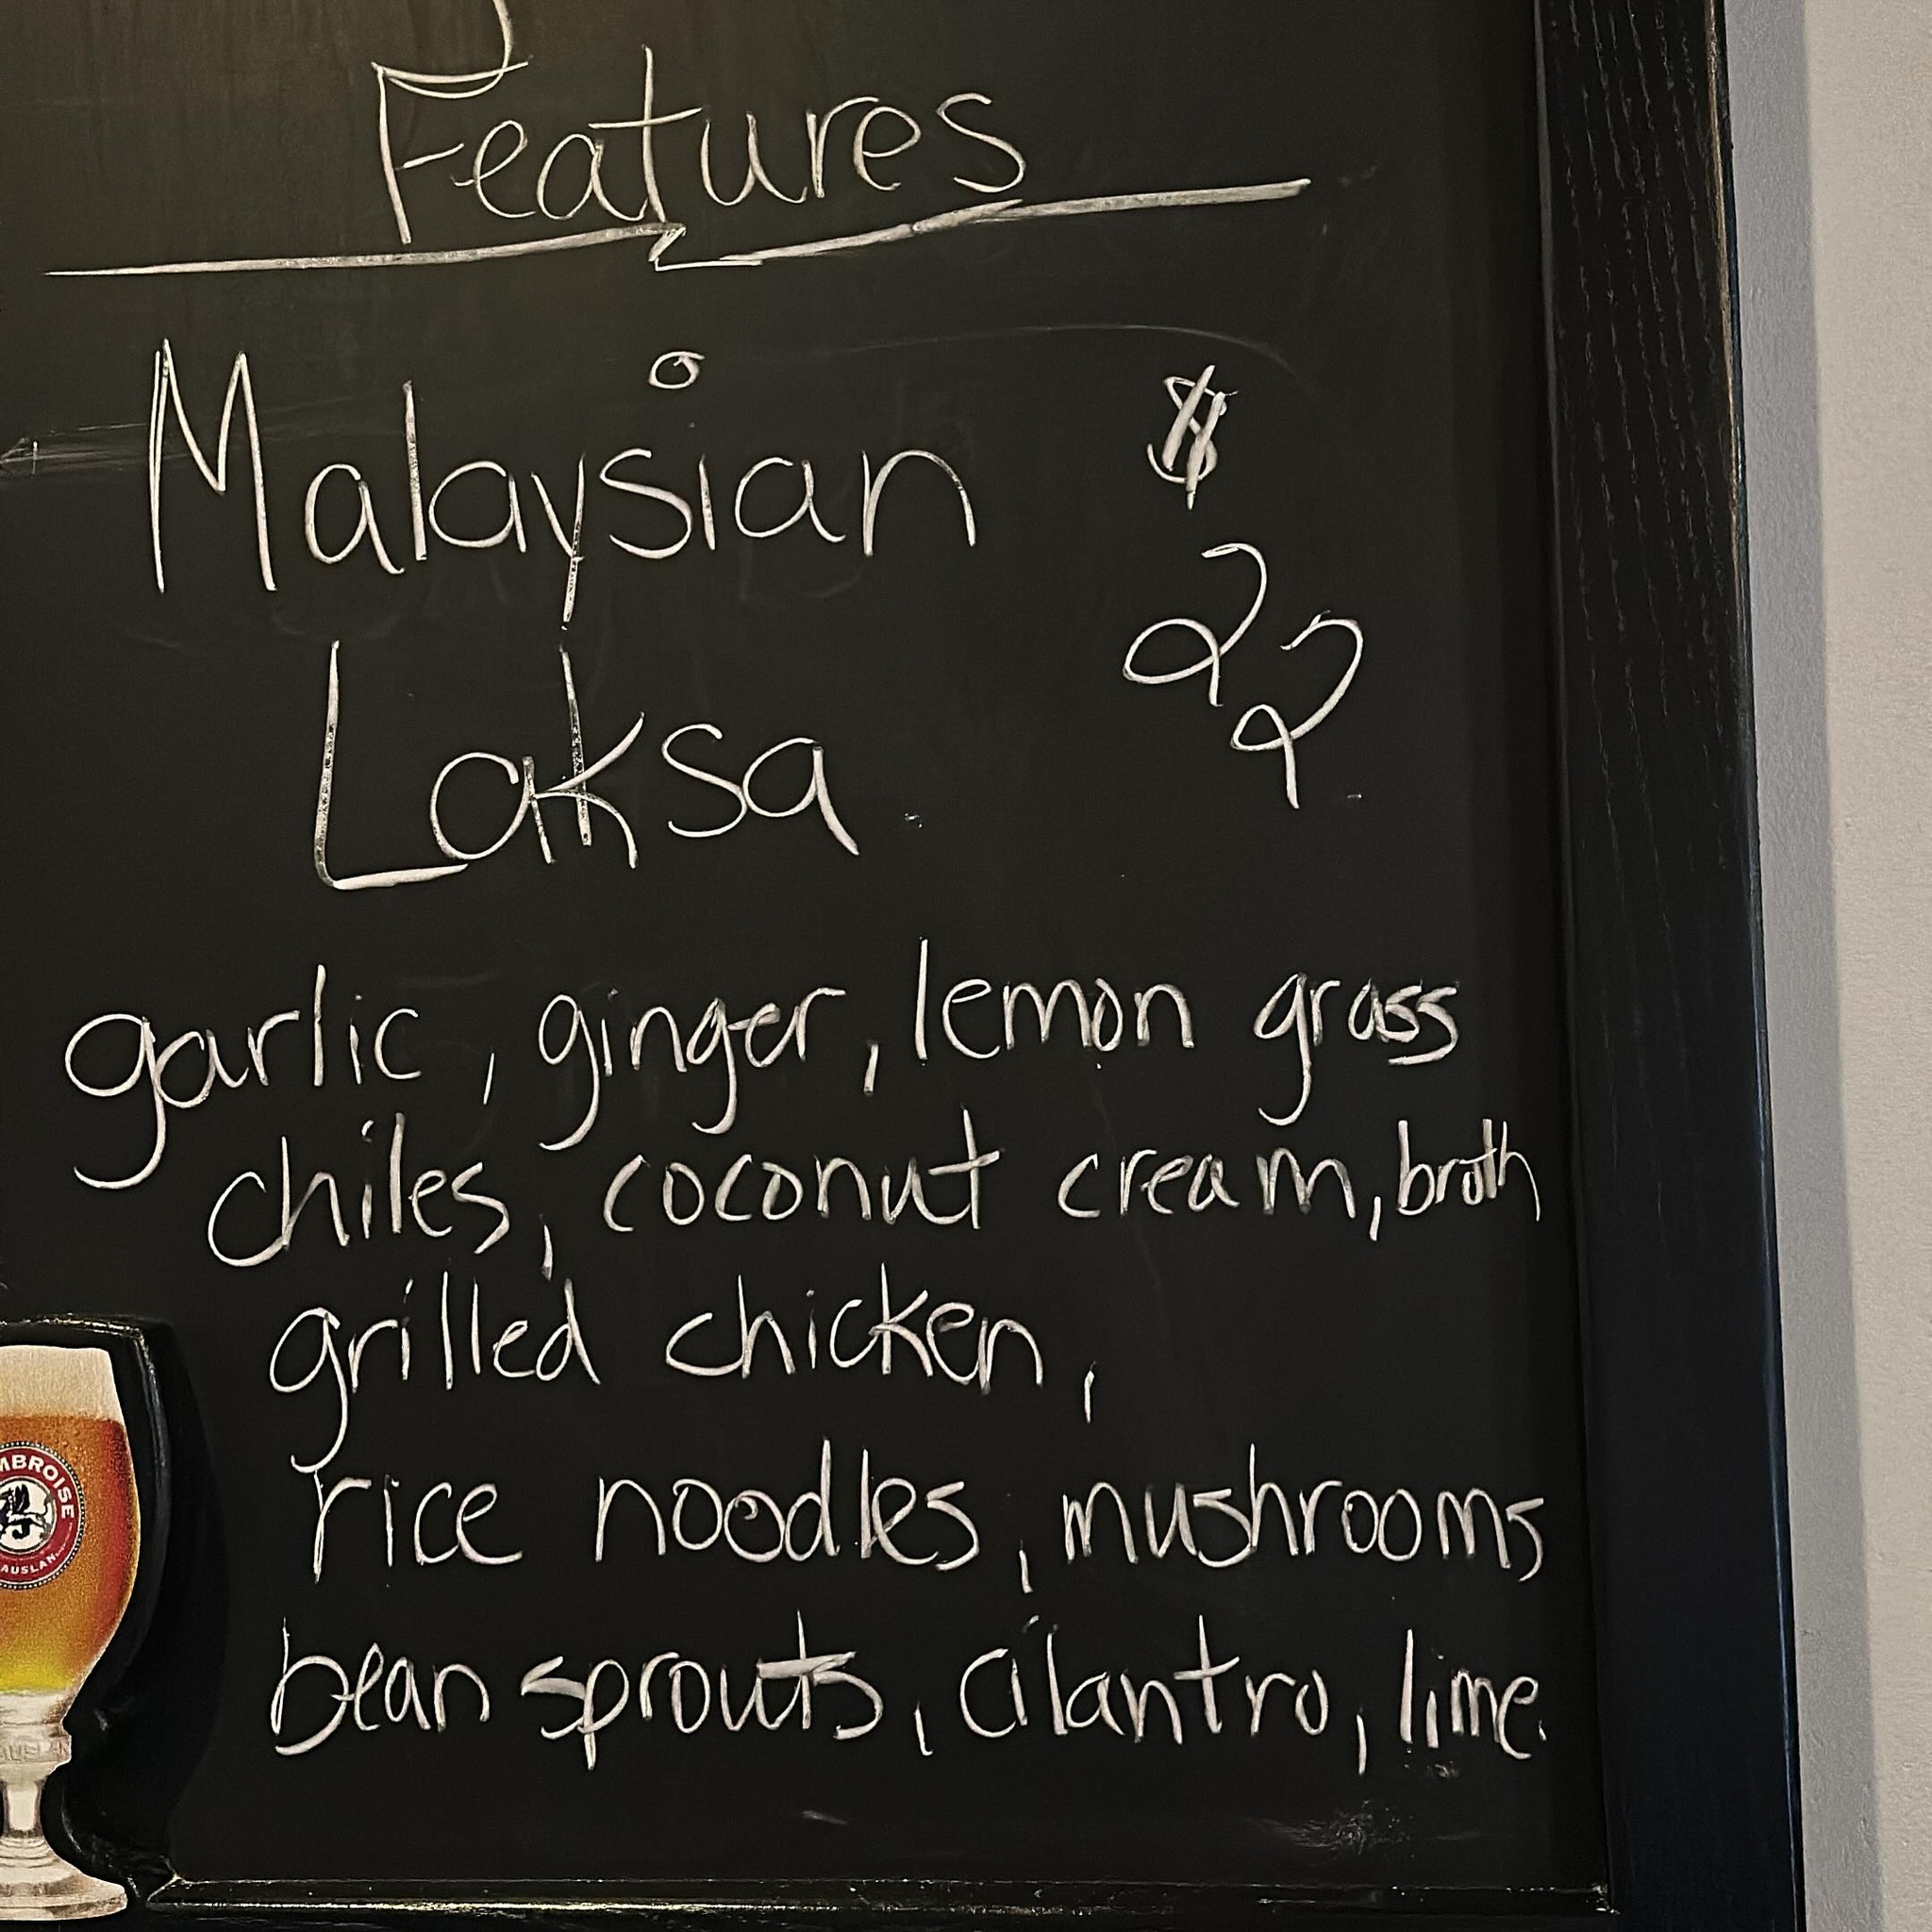 Features
Malaysian
$
22
Laksa
garlic, ginger, lemon grass
chiles, coconut cream, broth
grilled chicken,
rice noodles, mushrooms
bean sprouts, cilantro, lime.
MBROISE
AUSLAN